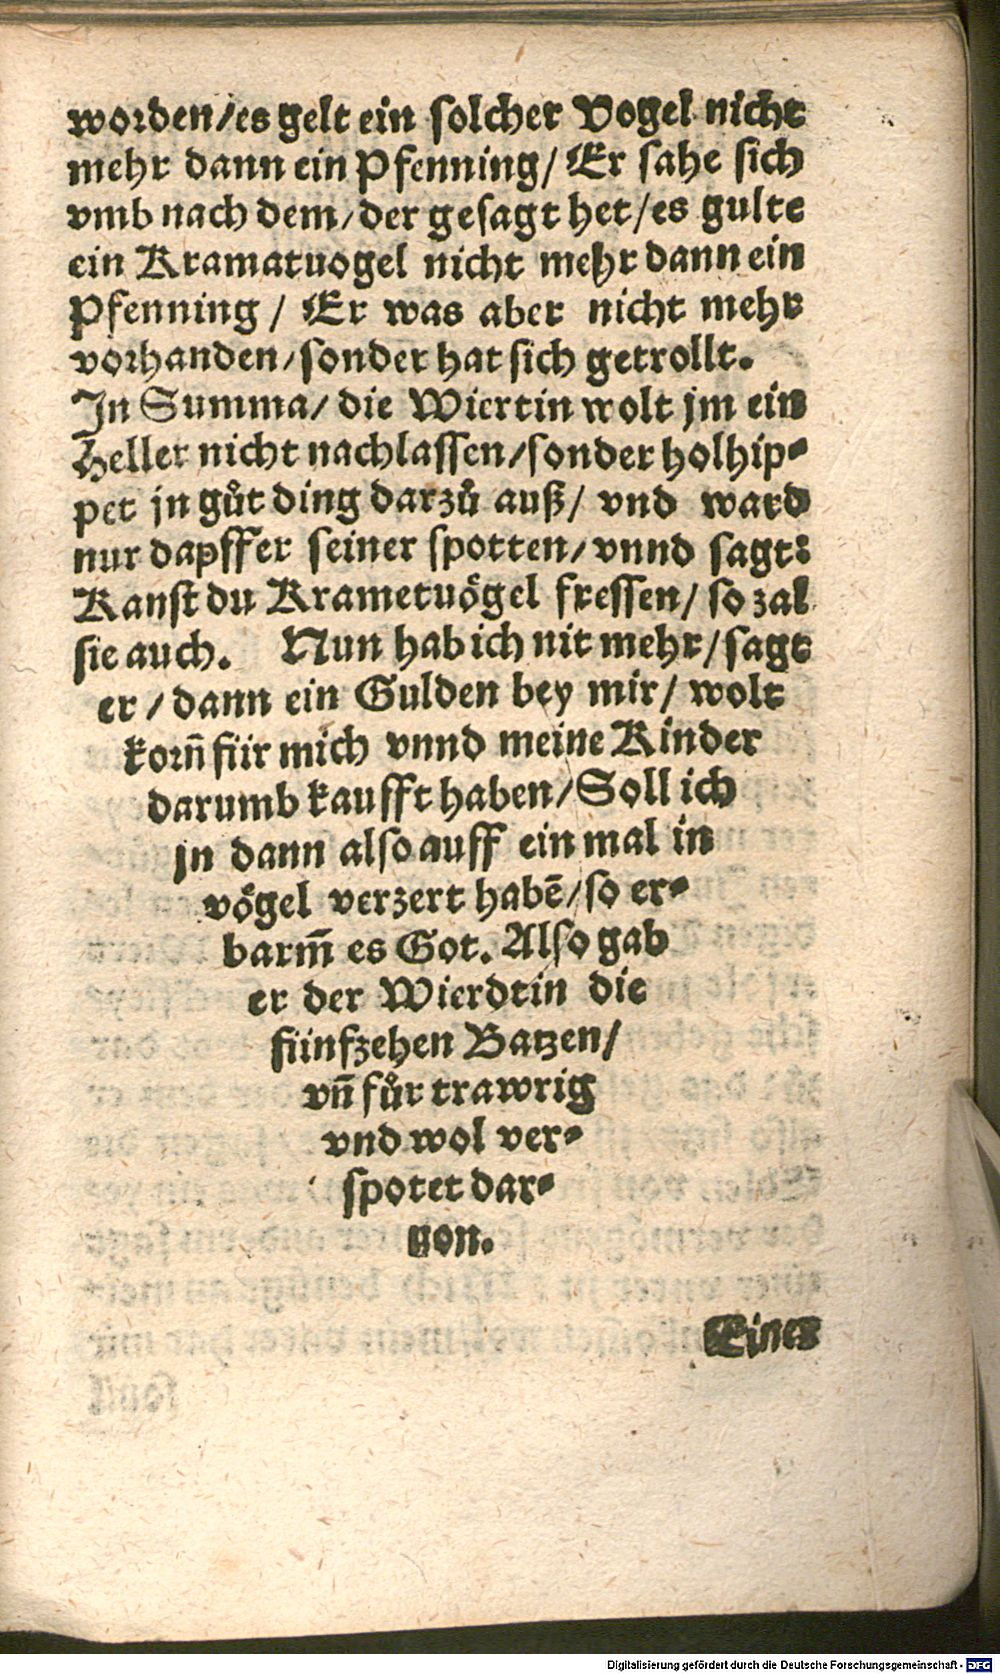 worden/es gelt ein solcher Vogel nicht
mehr dann ein Pfenning/ Er sahe sich
vmb nach dem/der gesagt het/es gulte
ein Kramatuogel nicht mehr dann ein
Pfenning/ Er was aber nicht mehr
vorhanden/sonder hat sich getrollt.
In Summa/ die Wiertin wolt jm ein
Heller nicht nachlassen/sonder holhip-
pet jn gůt ding darzů auß/ vnd ward
nur dapffer seiner spotten/vnnd sagt:
Kanst du Krametuögel fressen/ so zal
sie auch. Nun hab ich nit mehr/sagt
er/dann ein Gulden bey mir/ wolt
korn̄ für mich vnnd meine Kinder
darumb kaufft haben/Soll ich
jn dann also auff ein mal in
vögel verzert habē/so er-
barm̄ es Got. Also gab
er der Wierdtin die
fünfzehen Batzen/
vn̄ fůr trawrig
vnd wol ver-
spotet dar-
uon.
Eines
Digitalisierung gefördert durch die Deutsche Forschungsgemeinschaft - DFG